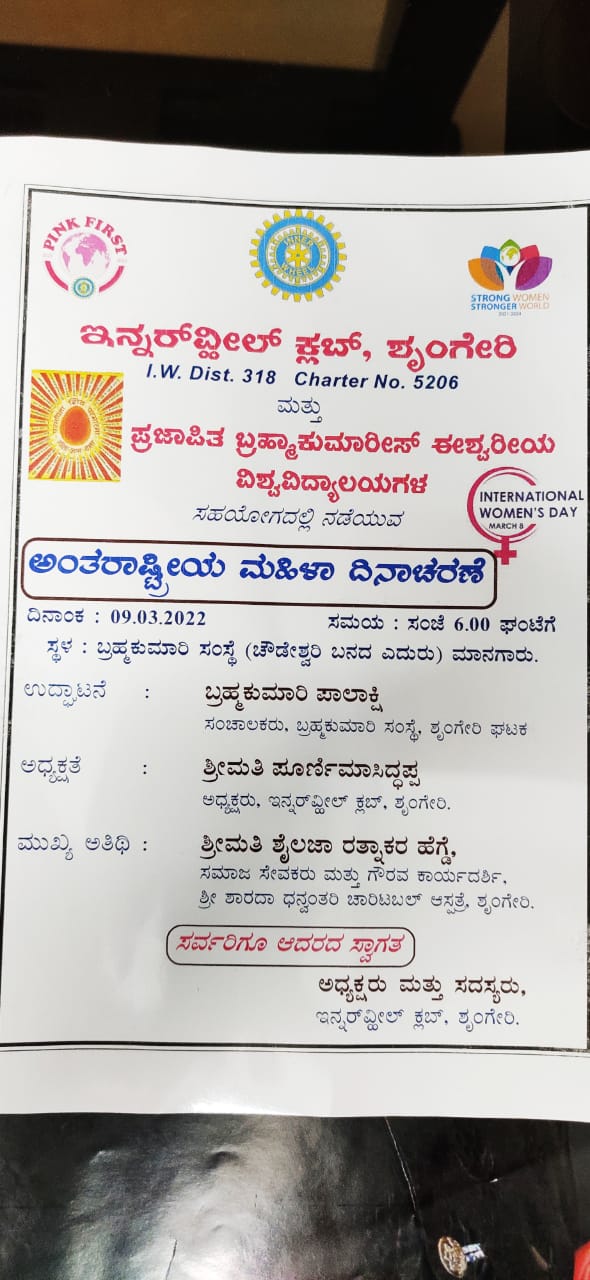 PINK FIRST
INNER WHEEL
STRONG WOMEN
STRONGER WORLD
ಇನ್ನರ್‌ವ್ಹೀಲ್ ಕ್ಲಬ್, ಶೃಂಗೇರಿ
I.W. Dist. 318 Charter No. 5206
ಮತ್ತು
ಪ್ರಜಾಪಿತ ಬ್ರಹ್ಮಾಕುಮಾರೀಸ್ ಈಶ್ವರೀಯ
ವಿಶ್ವವಿದ್ಯಾಲಯಗಳ
ಸಹಯೋಗದಲ್ಲಿ ನಡೆಯುವ
INTERNATIONAL
WOMEN'S DAY
MARCH 8
ಅಂತರಾಷ್ಟ್ರೀಯ ಮಹಿಳಾ ದಿನಾಚರಣೆ
ದಿನಾಂಕ : 09.03.2022 ಸಮಯ : ಸಂಜೆ 6.00 ಘಂಟೆಗೆ
ಸ್ಥಳ : ಬ್ರಹ್ಮಕುಮಾರಿ ಸಂಸ್ಥೆ (ಚೌಡೇಶ್ವರಿ ಬನದ ಎದುರು) ಮಾನಗಾರು.
ಉದ್ಘಾಟನೆ : ಬ್ರಹ್ಮಕುಮಾರಿ ಪಾಲಾಕ್ಷಿ
ಸಂಚಾಲಕರು, ಬ್ರಹ್ಮಕುಮಾರಿ ಸಂಸ್ಥೆ, ಶೃಂಗೇರಿ ಘಟಕ
ಅಧ್ಯಕ್ಷತೆ : ಶ್ರೀಮತಿ ಪೂರ್ಣಿಮಾಸಿದ್ಧಪ್ಪ
ಅಧ್ಯಕ್ಷರು, ಇನ್ನರ್‌ವ್ಹೀಲ್ ಕ್ಲಬ್, ಶೃಂಗೇರಿ.
ಮುಖ್ಯ ಅತಿಥಿ : ಶ್ರೀಮತಿ ಶೈಲಜಾ ರತ್ನಾಕರ ಹೆಗ್ಡೆ,
ಸಮಾಜ ಸೇವಕರು ಮತ್ತು ಗೌರವ ಕಾರ್ಯದರ್ಶಿ,
ಶ್ರೀ ಶಾರದಾ ಧನ್ವಂತರಿ ಚಾರಿಟಬಲ್ ಆಸ್ಪತ್ರೆ, ಶೃಂಗೇರಿ.
ಸರ್ವರಿಗೂ ಆದರದ ಸ್ವಾಗತ
ಅಧ್ಯಕ್ಷರು ಮತ್ತು ಸದಸ್ಯರು,
ಇನ್ನರ್‌ವ್ಹೀಲ್ ಕ್ಲಬ್, ಶೃಂಗೇರಿ.